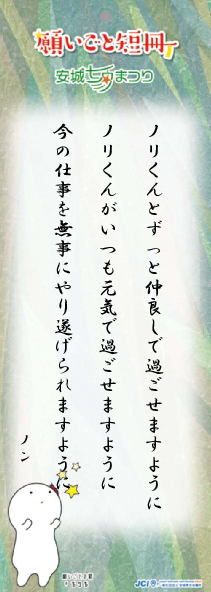 願いごと短冊
安城七夕まつり
ノリくんとずっと仲良しで過ごせますように
ノリくんがいつも元気で過ごせますように
今の仕事を無事にやり遂げられますように
ノン
JCI